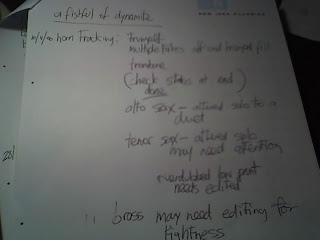 a fistful of dynamite
horn tracking: trumpet
multiple takes off end trumpet fill
trombone
(check slides at end)
done
alto sax – altered solo to a
duet
tenor sax – altered solo
may need attention
overdubbed low part
needs edited
" brass may need editing for
tightness